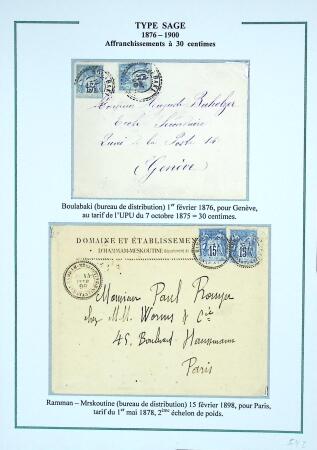 TYPE SAGE
1876 – 1900
Affranchissements à 30 centimes
Monsieur Auguste
École Secondaire
de la Poste 14
Genève
Boulabaki (bureau de distribution) 1er février 1876, pour Genève,
au tarif de l'UPU du 7 octobre 1875 = 30 centimes.
DOMAINE ET ÉTABLISSEMENT
D'HAMMAM-MESKOUTINE
15
15
Monsieur Paul
chez M.M. Worms & Cie
45, Boulevard Haussmann
Paris
Ramman – Mrskoutine (bureau de distribution) 15 février 1898, pour Paris,
tarif du 1er mai 1878, 2ème échelon de poids.